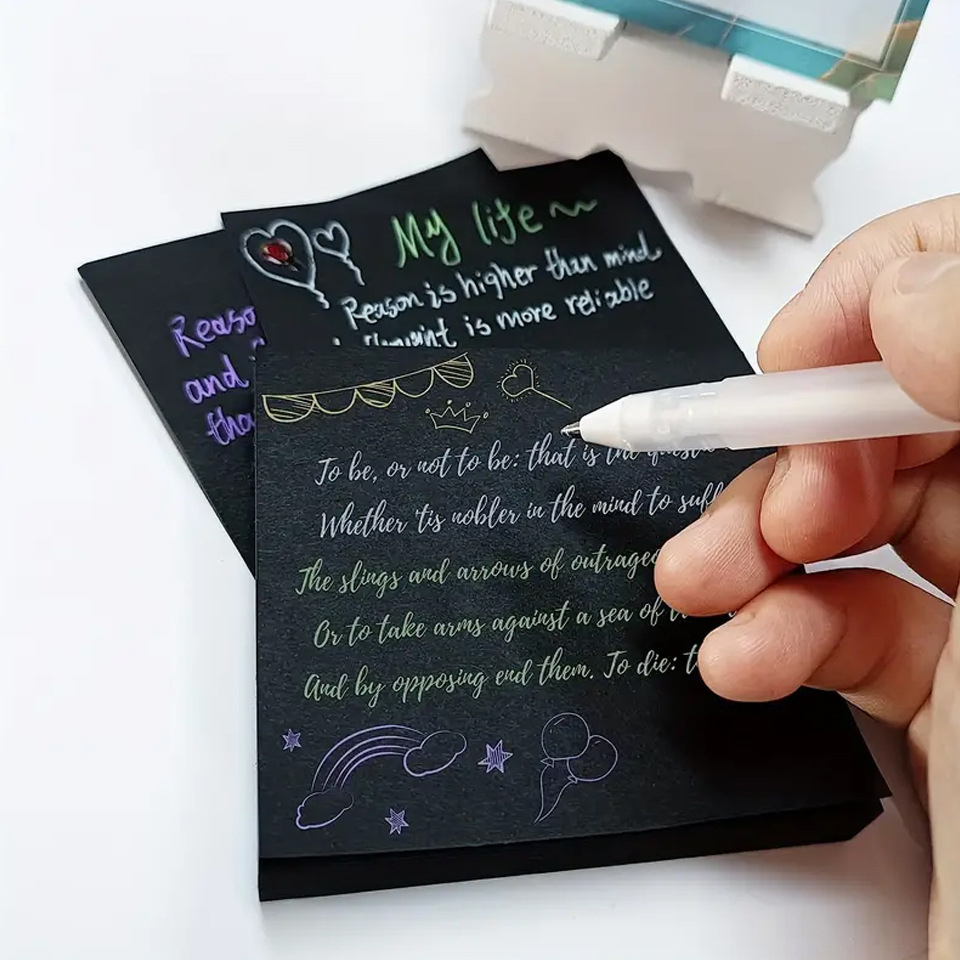 My life ~
Reason is higher than mind
is more reliable
Reaso
and
tha
To be, or not to be: that is the
Whether 'tis nobler in the mind to suff
The slings and arrows of outrageo
Or to take arms against a sea of
And by opposing end them. To die: t